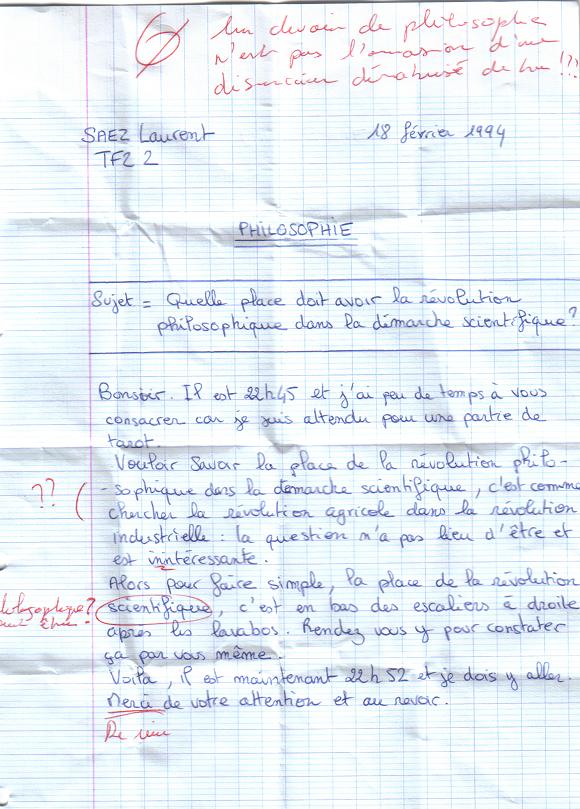 Un devoir de philosophie
n'est pas l'occasion d'une
dissertation
SAEZ Laurent
18 février 1994
TF2 2
PHILOSOPHIE
Sujet = Quelle place doit avoir la révolution
philosophique dans la démarche scientifique ?
Bonsoir. Il est 22h45 et j'ai peu de temps à vous
consacrer car je suis attendu pour une partie de
tarot.
Vouloir savoir la place de la révolution philo-
?? ( -sophique dans la démarche scientifique, c'est comme
chercher la révolution agricole dans la révolution
industrielle : la question n'a pas lieu d'être et
est inintéressante.
Alors pour faire simple, la place de la révolution
philosophique ? scientifique, c'est en bas des escaliers à droite
peut être après les lavabos. Rendez vous y pour constater
ça par vous même.
Voila, il est maintenant 22h52 et je dois y aller.
Merci de votre attention et au revoir.
De rien